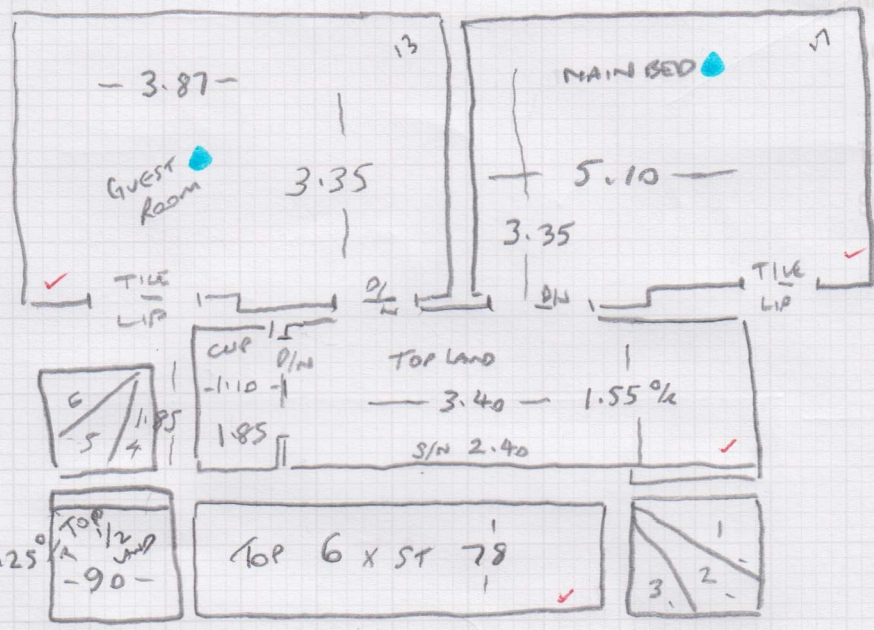 13
- 3.87 -
GUEST
ROOM
3.35
TILE
LIP
MAIN BED
5.10
3.35
D/N
TILE
LIP
CUP
D/N
-1.10-
1.85
TOP LAND
3.40
1.55 %
S/N 2.40
6
5
4
1.85
TOP
1/2
LAND
-90-
TOP 6 x ST 78
1
2
3